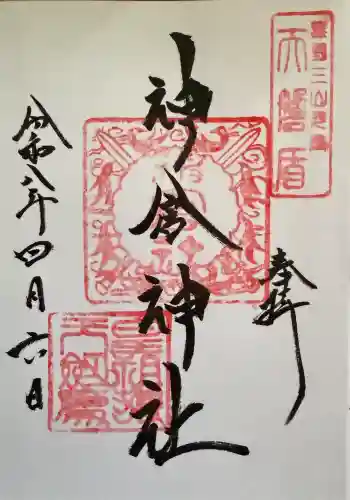 熊野三山
天磐盾
奉拝
神倉神社
令和八年四月六日